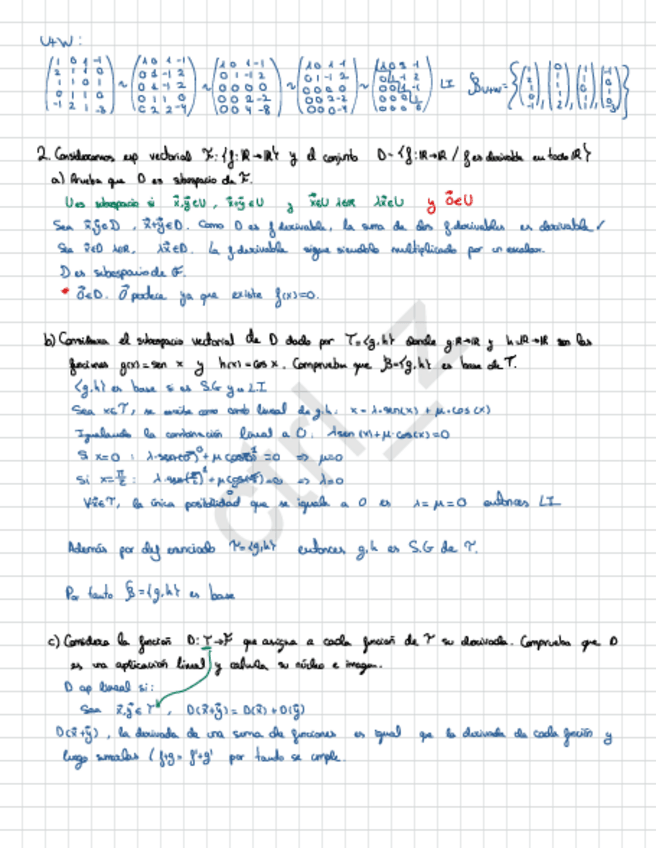 U+W:
2. Consideramos esp vectorial F: {f: ℝ→ℝ} y el conjunto D = {f: ℝ→ℝ / f es derivable en todo ℝ}
a) Prueba que D es subespacio de F.
U es subespacio si x⃗,y⃗∈U, x⃗+y⃗∈U y x⃗∈U λ∈ℝ λx⃗∈U y 0⃗∈U
Sea x⃗,y⃗∈D, x⃗+y⃗∈D. Como D es f derivable, la suma de dos f derivables es derivable ✓
Sea x⃗∈D λ∈ℝ, λx⃗∈D. La f derivable sigue siendolo multiplicado por un escalar.
D es subespacio de F.
* 0⃗∈D. 0⃗ ya que existe f(x)=0.
b) Considera el subespacio vectorial de D dado por T=<g,h> donde g:ℝ→ℝ y h:ℝ→ℝ son las
funciones g(x)=sen x y h(x)=cos x. Comprueba que B={g,h} es base de T.
{g,h} es base si es S.G y es LI
Sea x∈T, se escribe como comb lineal de g,h. x = λ·sen(x) + μ·cos(x)
Igualando la combinación lineal a 0. λsen(x)+μ·cos(x)=0
Si x=0 : λ·sen(0)⁰+μcos(0)¹=0 ⇒ μ=0
Si x=π/2 : λ·sen(π/2)¹+μcos(π/2)⁰=0 ⇒ λ=0
∀x⃗∈T, la única posibilidad que se iguale a 0 es λ=μ=0 entonces LI
Además por def enunciado T=<g,h> entonces g,h es S.G de T.
Por tanto B={g,h} es base
c) Considera la función D: T→F que asigna a cada función de T su derivada. Comprueba que D
es una aplicación lineal y calcula su núcleo e imagen.
D ap lineal si:
Sea x⃗,y⃗∈T, D(x⃗+y⃗)=D(x⃗)+D(y⃗)
D(x⃗+y⃗), la derivada de una suma de funciones es igual que la derivada de cada función y
luego sumarlas (f+g = f'+g' por tanto se cumple.
ctrl_z